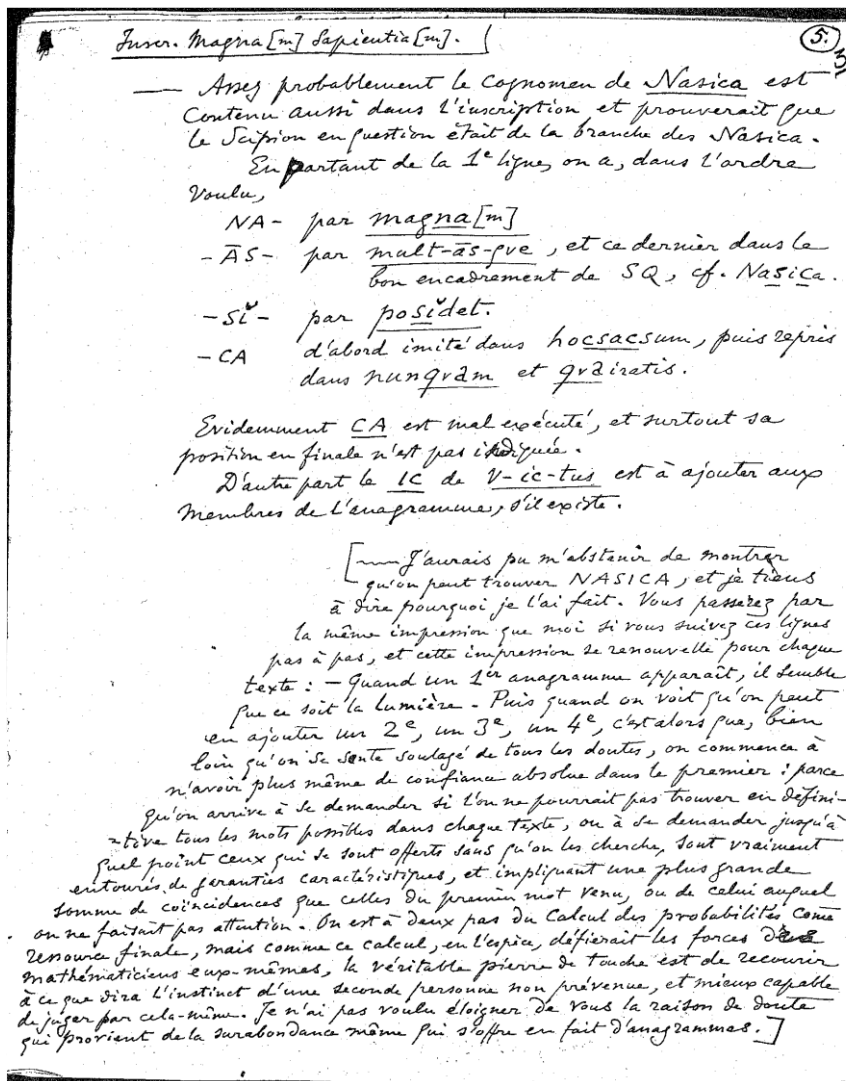 Inscr. Magna[m] Sapientia[m].
5.
— Assez probablement le cognomen de Nasica est
contenu aussi dans l'inscription et prouverait que
le Scipion en question était de la branche des Nasica.
En partant de la 1e ligne, on a, dans l'ordre
voulu,
NA- par magna[m]
-ĀS- par mult-ās-qve, et ce dernier dans le
bon encadrement de SQ, cf. Nasica.
-SĬ- par posĭdet.
-CA d'abord imité dans hocsacsum, puis repris
dans nunqvam et qvairatis.
Evidemment CA est mal exécuté, et surtout sa
position en finale n'est pas indiquée.
D'autre part le IC de V-ic-tus est à ajouter aux
membres de l'anagramme, s'il existe.
[— J'aurais pu m'abstenir de montrer
qu'on peut trouver NASICA, et je tiens
à dire pourquoi je l'ai fait. Vous passerez par
la même impression que moi si vous suivez ces lignes
pas à pas, et cette impression se renouvelle pour chaque
texte : – Quand un 1er anagramme apparaît, il semble
que ce soit la lumière. – Puis quand on voit qu'on peut
en ajouter un 2e, un 3e, un 4e, c'est alors que, bien
loin qu'on se sente soulagé de tous les doutes, on commence à
n'avoir plus même de confiance absolue dans le premier : parce
qu'on arrive à se demander si l'on ne pourrait pas trouver en défini-
-tive tous les mots possibles dans chaque texte, ou à se demander jusqu'à
quel point ceux qui se sont offerts sans qu'on les cherche, sont vraiment
entourés de garanties caractéristiques, et impliquant une plus grande
somme de coïncidences que celles du premier mot venu, ou de celui auquel
on ne faisait pas attention. On est à deux pas du calcul des probabilités come
ressource finale, mais comme ce calcul, en l'espèce, défierait les forces des
mathématiciens eux-mêmes, la véritable pierre de touche est de recourir
à ce que dira l'instinct d'une seconde personne non prévenue, et mieux capable
de juger par cela-même. Je n'ai pas voulu éloigner de vous la raison de doute
qui provient de la surabondance même qui s'offre en fait d'anagrammes.]